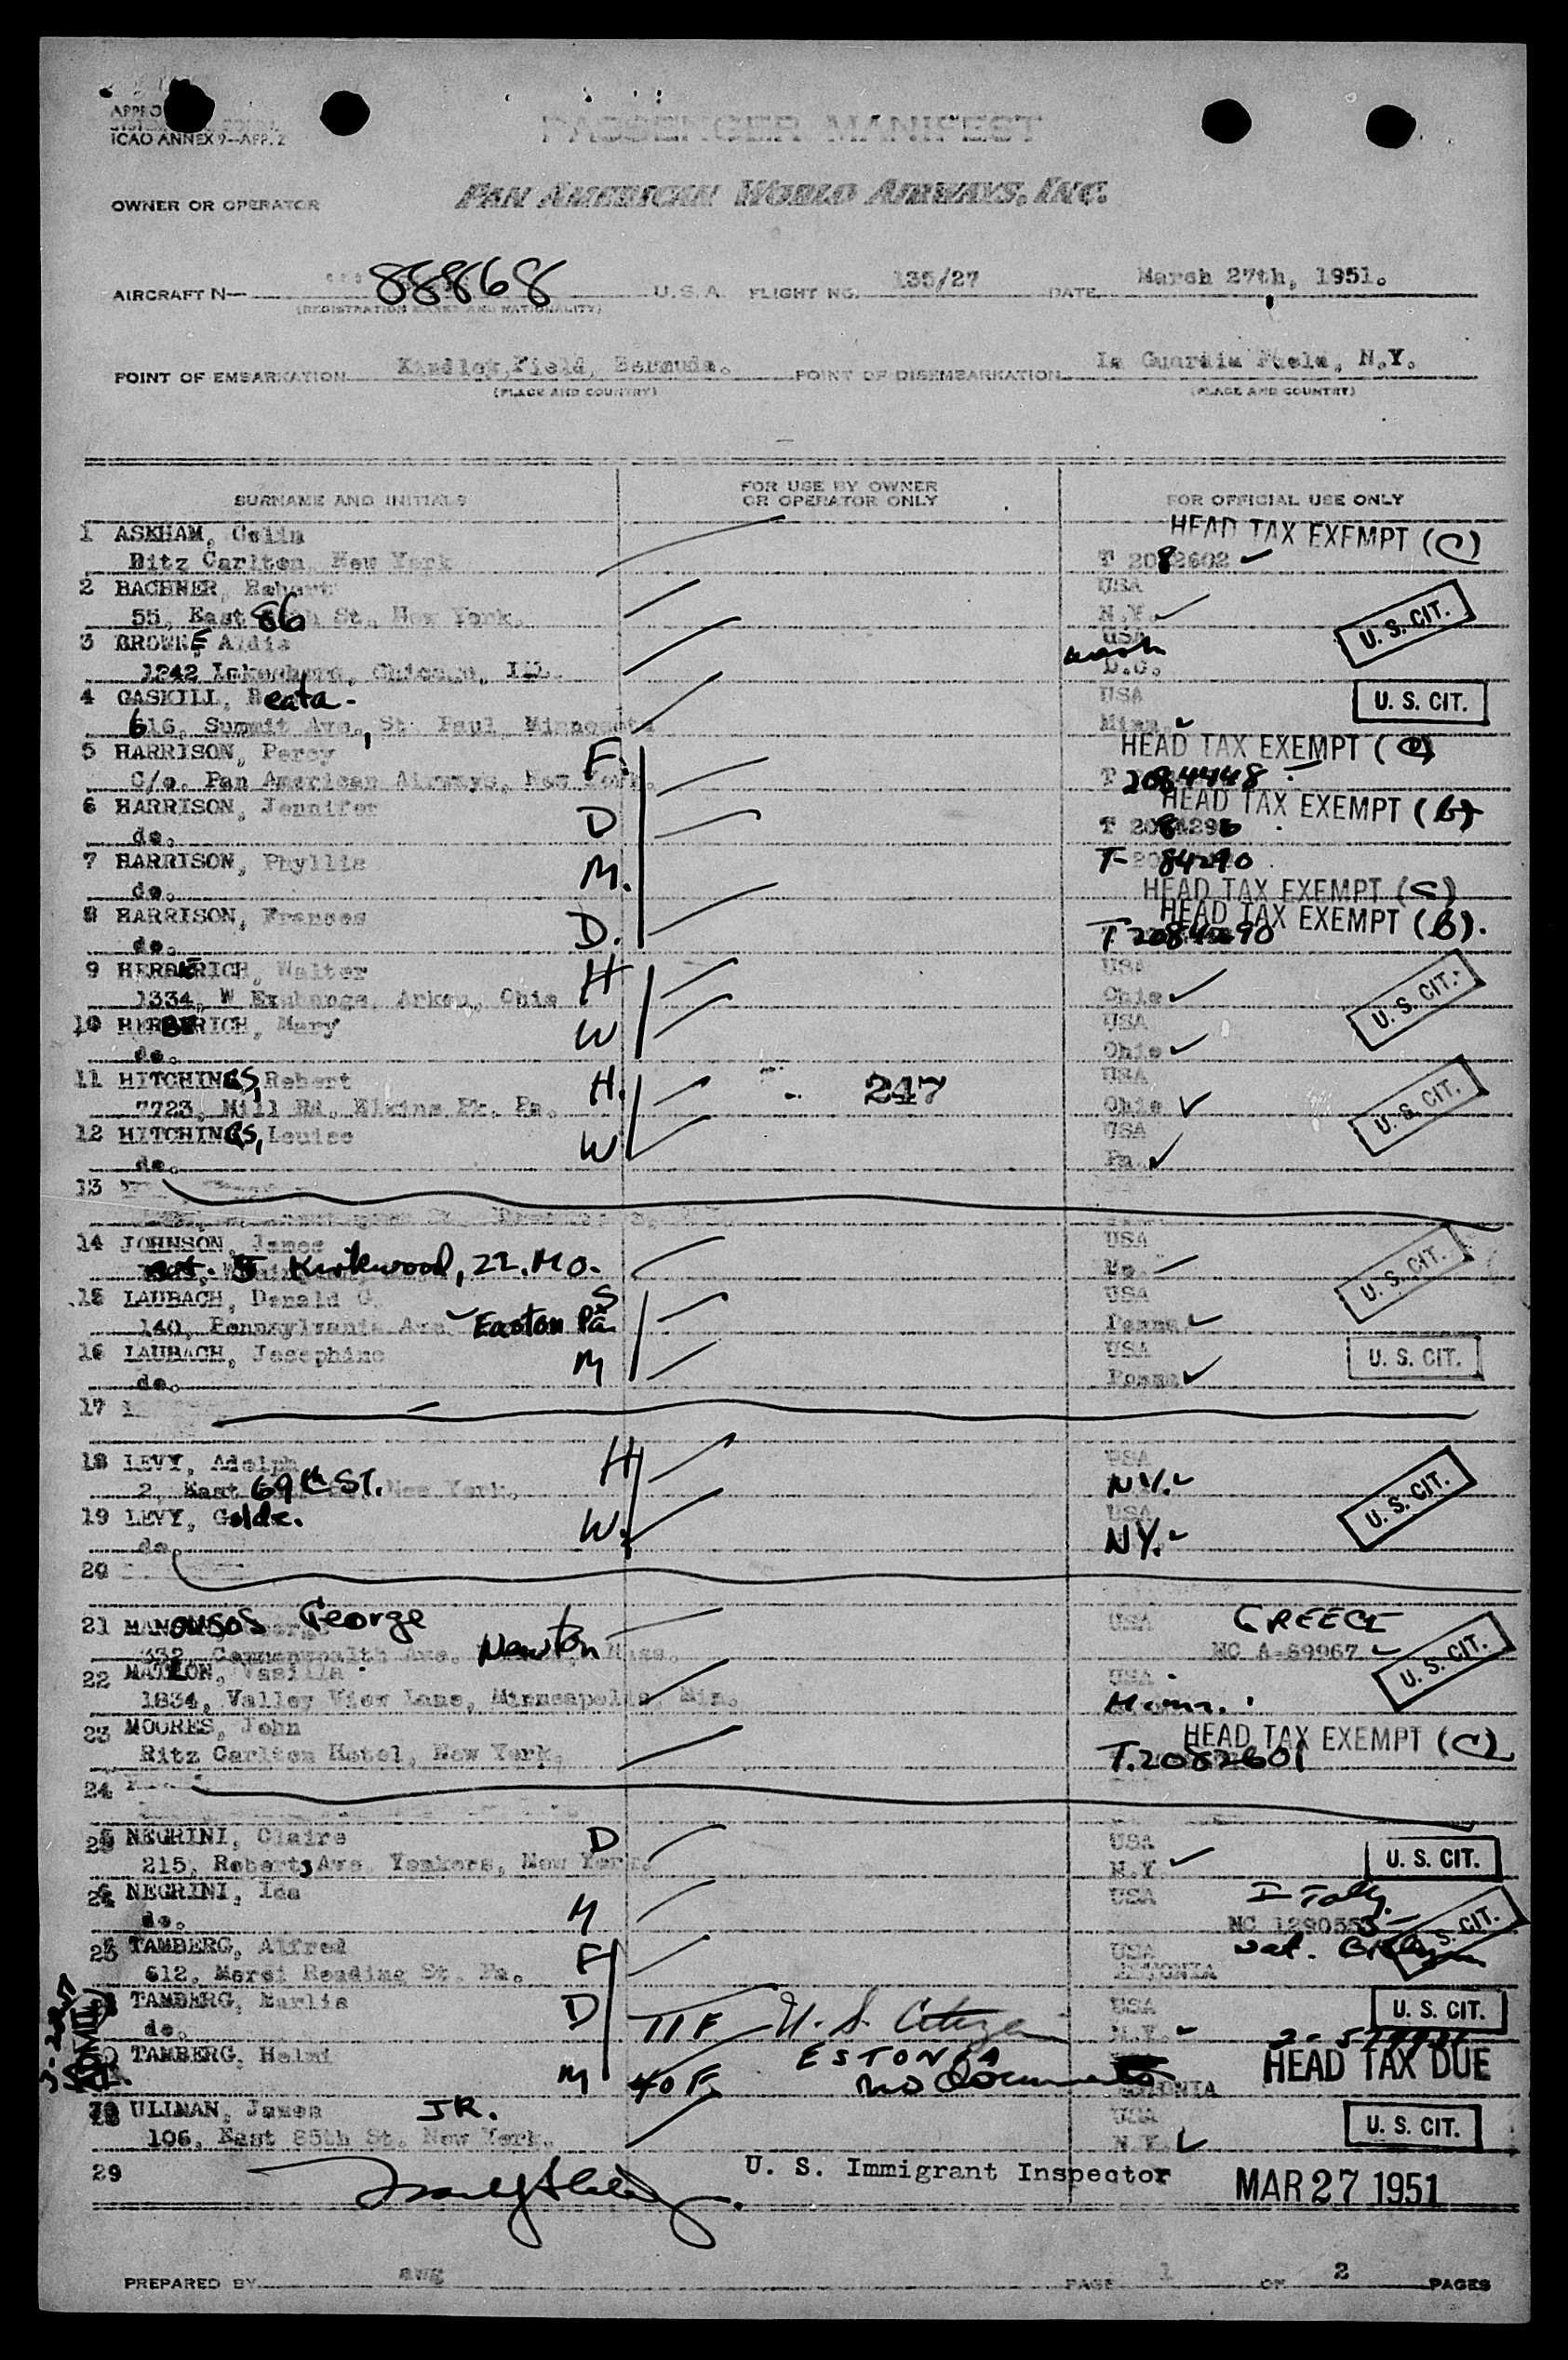 ICAO ANNEX 9—APP. 2
PASSENGER MANIFEST
OWNER OR OPERATOR PAN AMERICAN WORLD AIRWAYS, INC.
AIRCRAFT N— 88868 U.S.A. FLIGHT NO. 135/27 DATE March 27th, 1951.
(REGISTRATION MARKS AND NATIONALITY)
POINT OF EMBARKATION Kindley Field, Bermuda. POINT OF DISEMBARKATION La Guardia Field, N.Y.
(PLACE AND COUNTRY) (PLACE AND COUNTRY)
SURNAME AND INITIALS FOR USE BY OWNER OR OPERATOR ONLY FOR OFFICIAL USE ONLY
1 ASKHAM, Colin HEAD TAX EXEMPT (C)
Ritz Carlton New York T 2082602 ✓
2 BACHNER, Robert USA
55, East 86 St. New York. N.Y. ✓ U. S. CIT.
3 BROWNE Aldis USA
1242 Chicago, Ill. Wash D.C.
4 GASKILL, Beata - USA U. S. CIT.
616, Summit Ave., St. Paul Minnesota Minn. ✓
5 HARRISON, Percy F. HEAD TAX EXEMPT (C)
C/o. Pan American Airways, New York. T 2084448
6 HARRISON, Jennifer D HEAD TAX EXEMPT (B)
do.
7 HARRISON, Phyllis M. T- 84290
do. HEAD TAX EXEMPT (C)
8 HARRISON, Frances D. HEAD TAX EXEMPT (B).
do. T 2084290
9 HERBERICH, Walter H USA
1334, W Exchange, Ohio Ohio ✓ U. S. CIT.
10 HERBERICH, Mary W USA
do. Ohio ✓
11 HITCHINGS, Robert H. 247 USA
7723, Mill Rd. Elkins Pk. Pa. Ohio ✓ U. S. CIT.
12 HITCHINGS, Louise W USA
do. Pa. ✓
13
14 JOHNSON, James USA
5 Kirkwood, 22. Mo. Mo. U. S. CIT.
15 LAUBACH, Donald G. S USA
140, Pennsylvania Ave ✓ Easton Pa. Penna ✓
16 LAUBACH, Josephine M USA U. S. CIT.
do. Penna ✓
17
18 LEVY, Adolph H USA
2, East 69th ST. New York. NY. ✓ U. S. CIT.
19 LEVY, Golda. W. USA
do. NY. ✓
20
21 MANOUSOS George USA GREECE
332, Commonwealth Ave. Newton Mass. NC A-59967 ✓ U. S. CIT.
22 MATLON, Vasilla USA
1834, Valley View Lane, Minneapolis, Min. Minn.
23 MOORES, John HEAD TAX EXEMPT (C)
Ritz Carlton Hotel, New York, T.2082601
24
25 NEGRINI, Claire D USA U. S. CIT.
215, Roberts Ave. Yonkers, New York. N.Y. ✓
NEGRINI, Ida M USA Italy
do. NC U. S. CIT.
TAMBERG, Alfred F USA
612, St. Pa. ESTONIA
TAMBERG, Marlis D 11 F U. S. Citizen USA U. S. CIT.
do. N.Y. ✓
TAMBERG, Helmi M 40 F. ESTONIA no documents ESTONIA HEAD TAX DUE
ULLMAN, James JR. USA U. S. CIT.
106, East 85th St. New York. N.Y. ✓
29 U. S. Immigrant Inspector MAR 27 1951
PREPARED BY awg PAGE 1 OF 2 PAGES